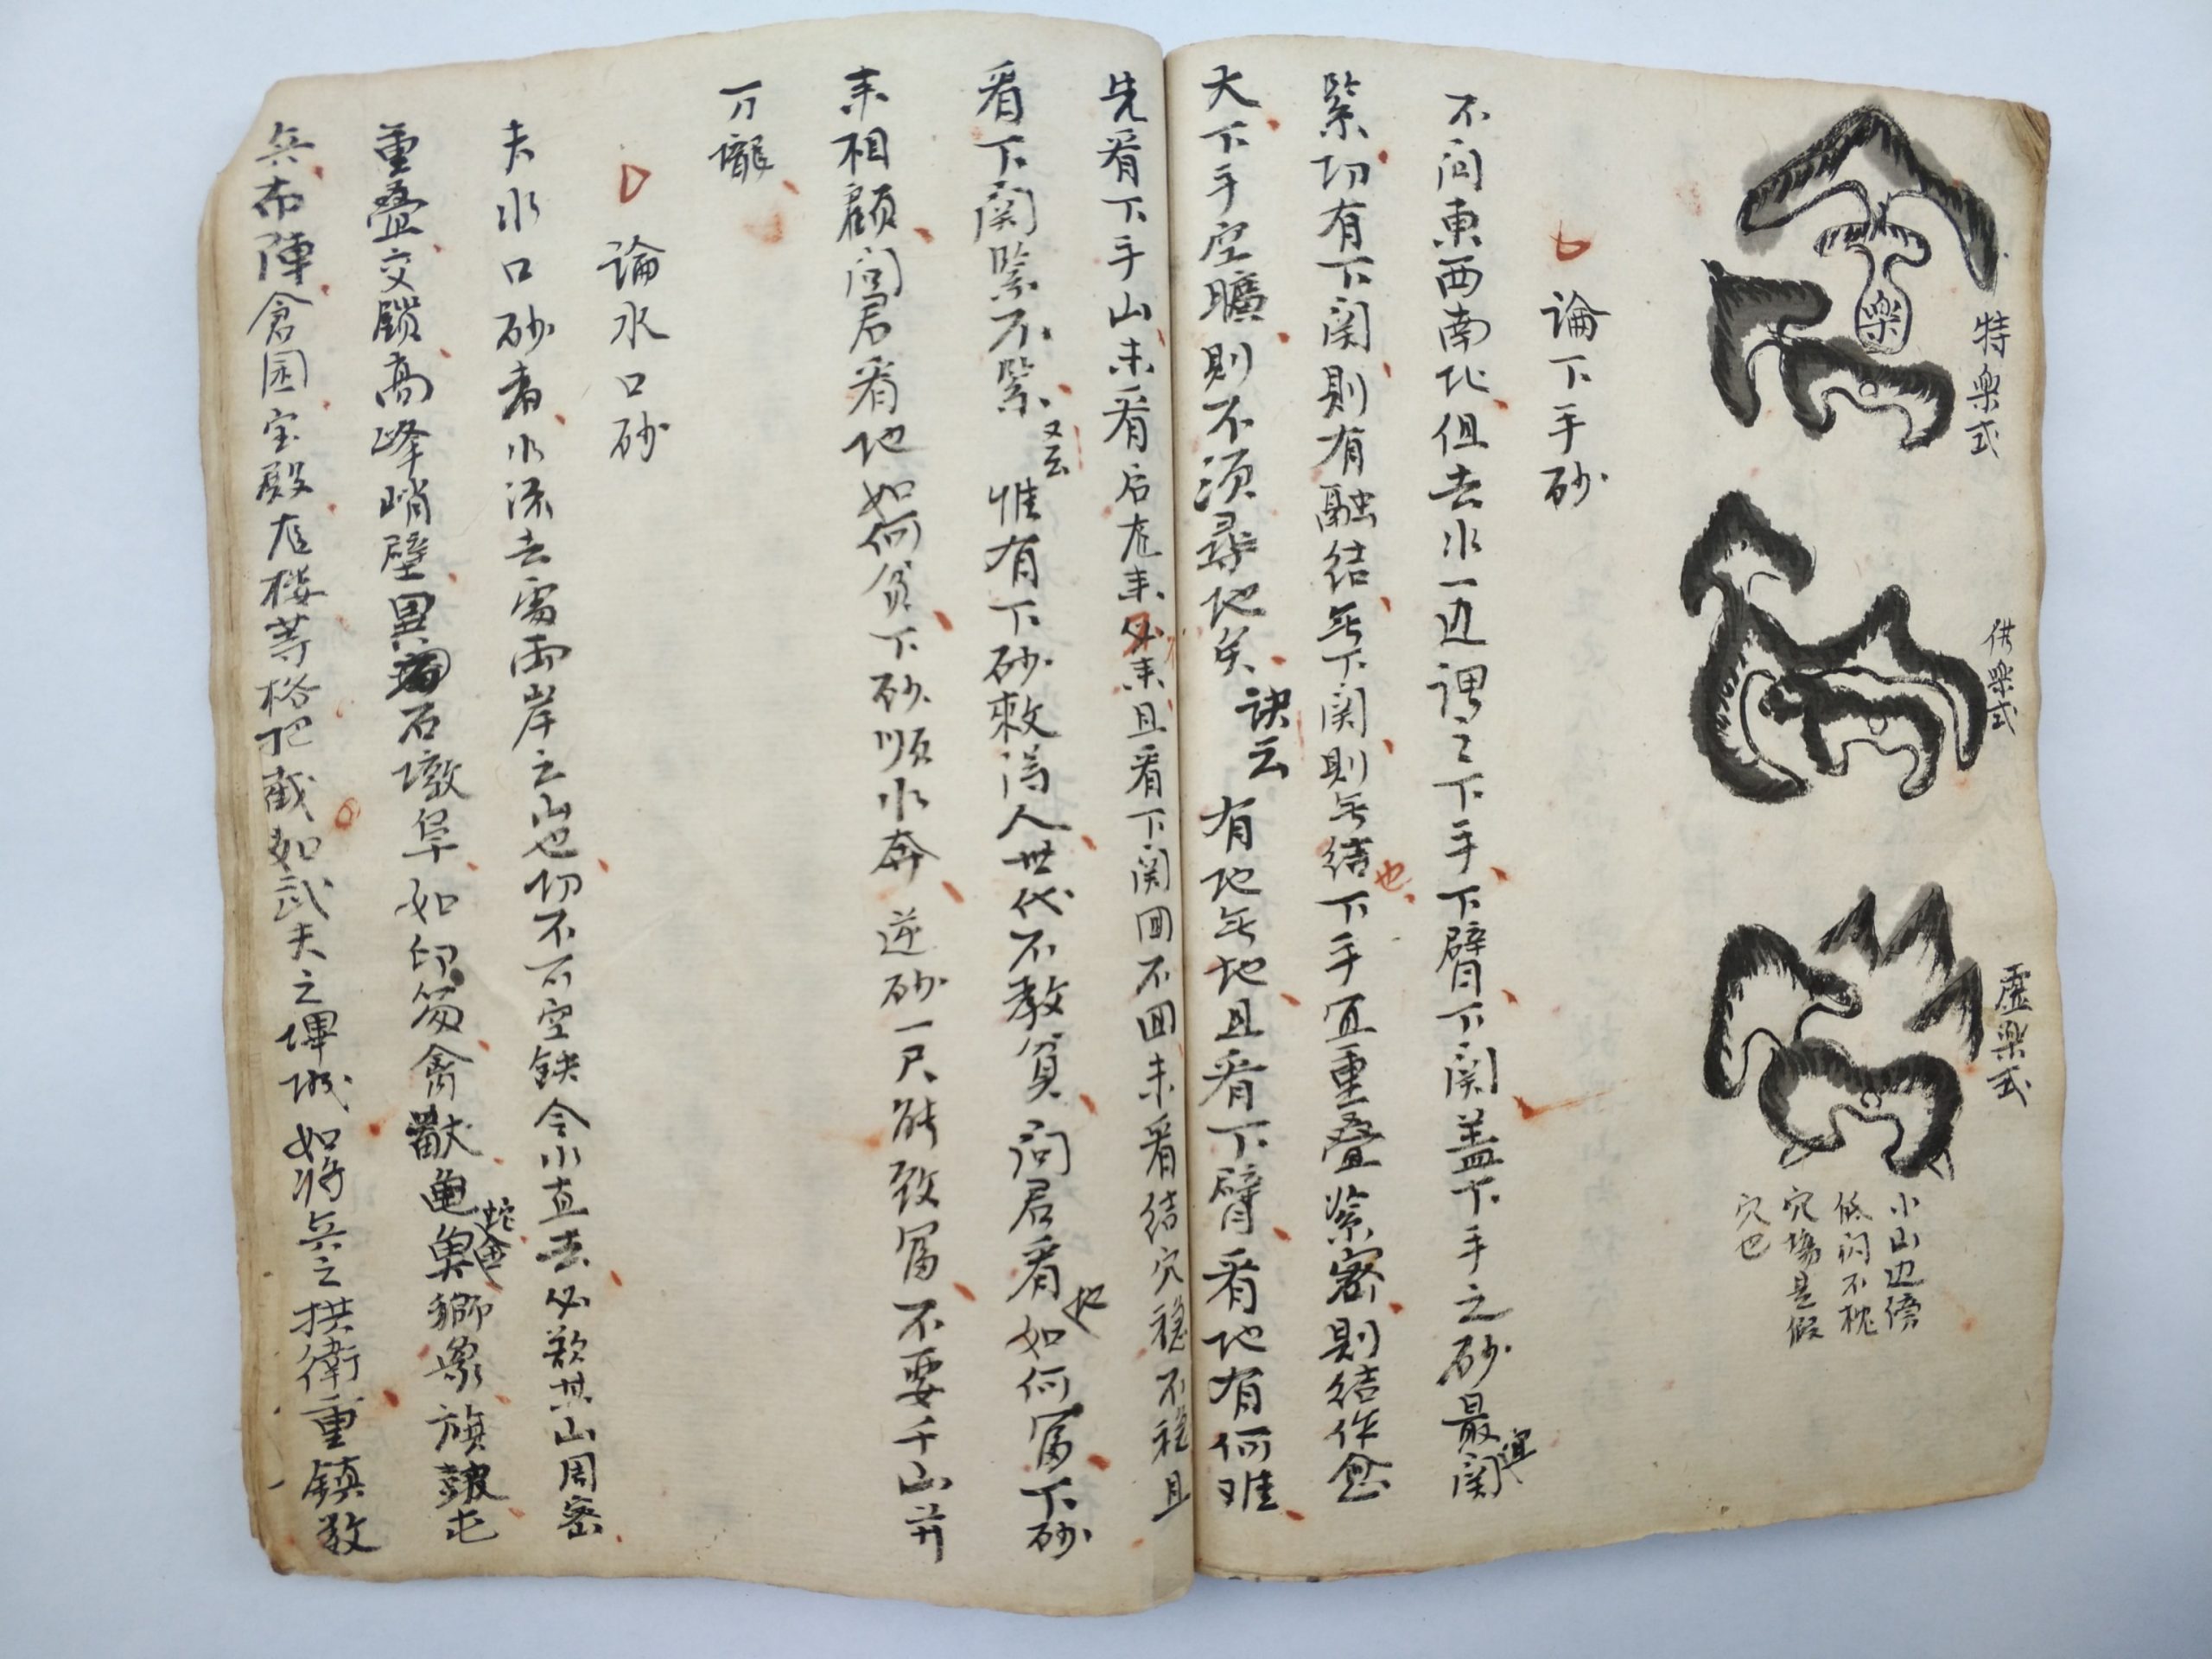 特楽式
楽
供楽式
虚楽式
小山边傍
低
不枕
穴場是假
穴也
論下手砂
不问東西南北但去水一边谓之下手下臂下関盖下手之砂最関
緊切有下関則有融结无下関則无结也下手宜重叠紧密則结作愈
大下手空曠則不须尋地矣 訣云 有地无地且看下臂看地有何难
先看下手山未看后龙来必来且看下関回不回未看结穴穏不穏且
看下関緊不緊 又云 惟有下砂救得人世代不教貧问君看地如何富下砂
来相顧问君看地如何貧下砂順水奔 逆砂一尺能致富不要千山并
万隴
論水口砂
夫水口砂者水流去處両岸之山也切不可空缺令水直去必欲其山周密
重叠交鎖高峰峭壁異石墩阜如印笏禽獸龜蛇魚獅象旗鼓屯
兵布陣倉囷宝殿龙楼等格把截如武夫之
城如將兵之拱衛重鎮数